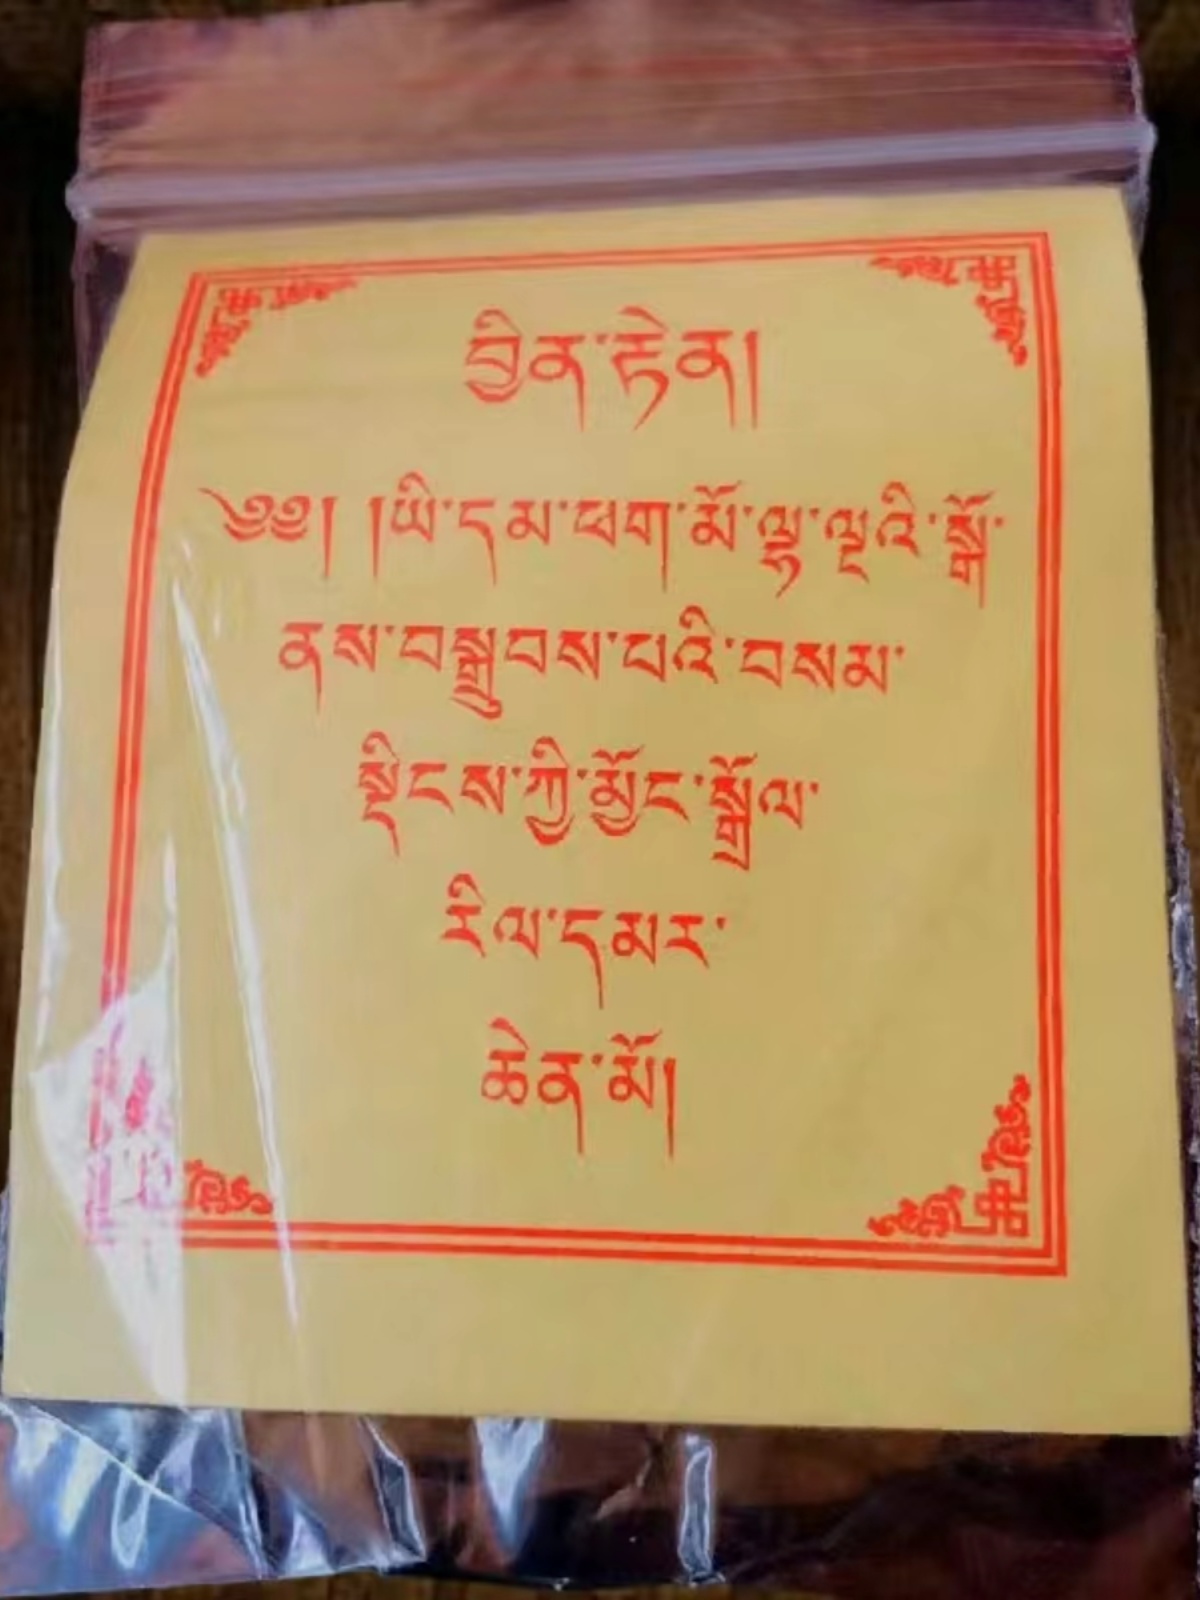 བྱིན་རྟེན།
༄༅། །ཡི་དམ་ཕག་མོ་ལྷ་ལྔའི་སྒོ་
ནས་བསྒྲུབས་པའི་བསམ་
སྡིངས་ཀྱི་མྱོང་སྒྲོལ་
རིལ་དམར་
ཆེན་མོ།